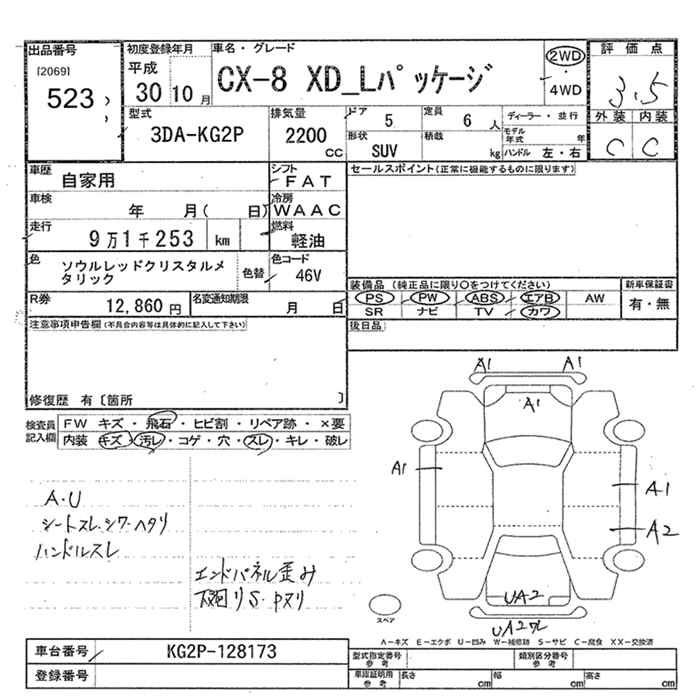 出品番号
[2069]
523
初度登録年月
平成
30 10月
車名・グレード
CX-8 XD_Lパッケージ
2WD
・
4WD
評価点
3.5
外装 内装
C C
型式
3DA-KG2P
排気量
2200
CC
ドア
5
定員
6 人
形状
SUV
積載
kg
ディーラー・並行
モデル年式 年
ハンドル 左・右
車歴
自家用
シフト
FAT
車検
年 月( 日)
冷房
WAAC
走行
9万1千253 km
燃料
軽油
色
ソウルレッドクリスタルメタリック
色替
色コード
46V
R券
12,860円
名変通知期限
月 日
セールスポイント(正常に機能するものに限ります)
装備品 (純正品に限り○をつけてください)
PS PW ABS エアB AW
SR ナビ TV カワ
新車保証書
有・無
後日品
注意事項申告欄(不具合内容等は具体的に記入して下さい)
修復歴 有〔箇所 〕
検査員
記入欄
FW キズ・飛石・ヒビ割・リペア跡・×要
内装 キズ・汚レ・コゲ・穴・スレ・キレ・破レ
A・U
シートスレ、シワ・ヘタリ
ハンドルスレ
エンドパネル歪み
A1 A1
A1
A1
A1
A2
UA2
UA2
スペア
A－キズ E－エクボ U－凹み W－補修跡 S－サビ C－腐食 XX－交換済
車台番号
KG2P-128173
登録番号
型式指定番号
参考
類別区分番号
参考
車庫証明用
参考
長さ cm
幅 cm
高さ cm